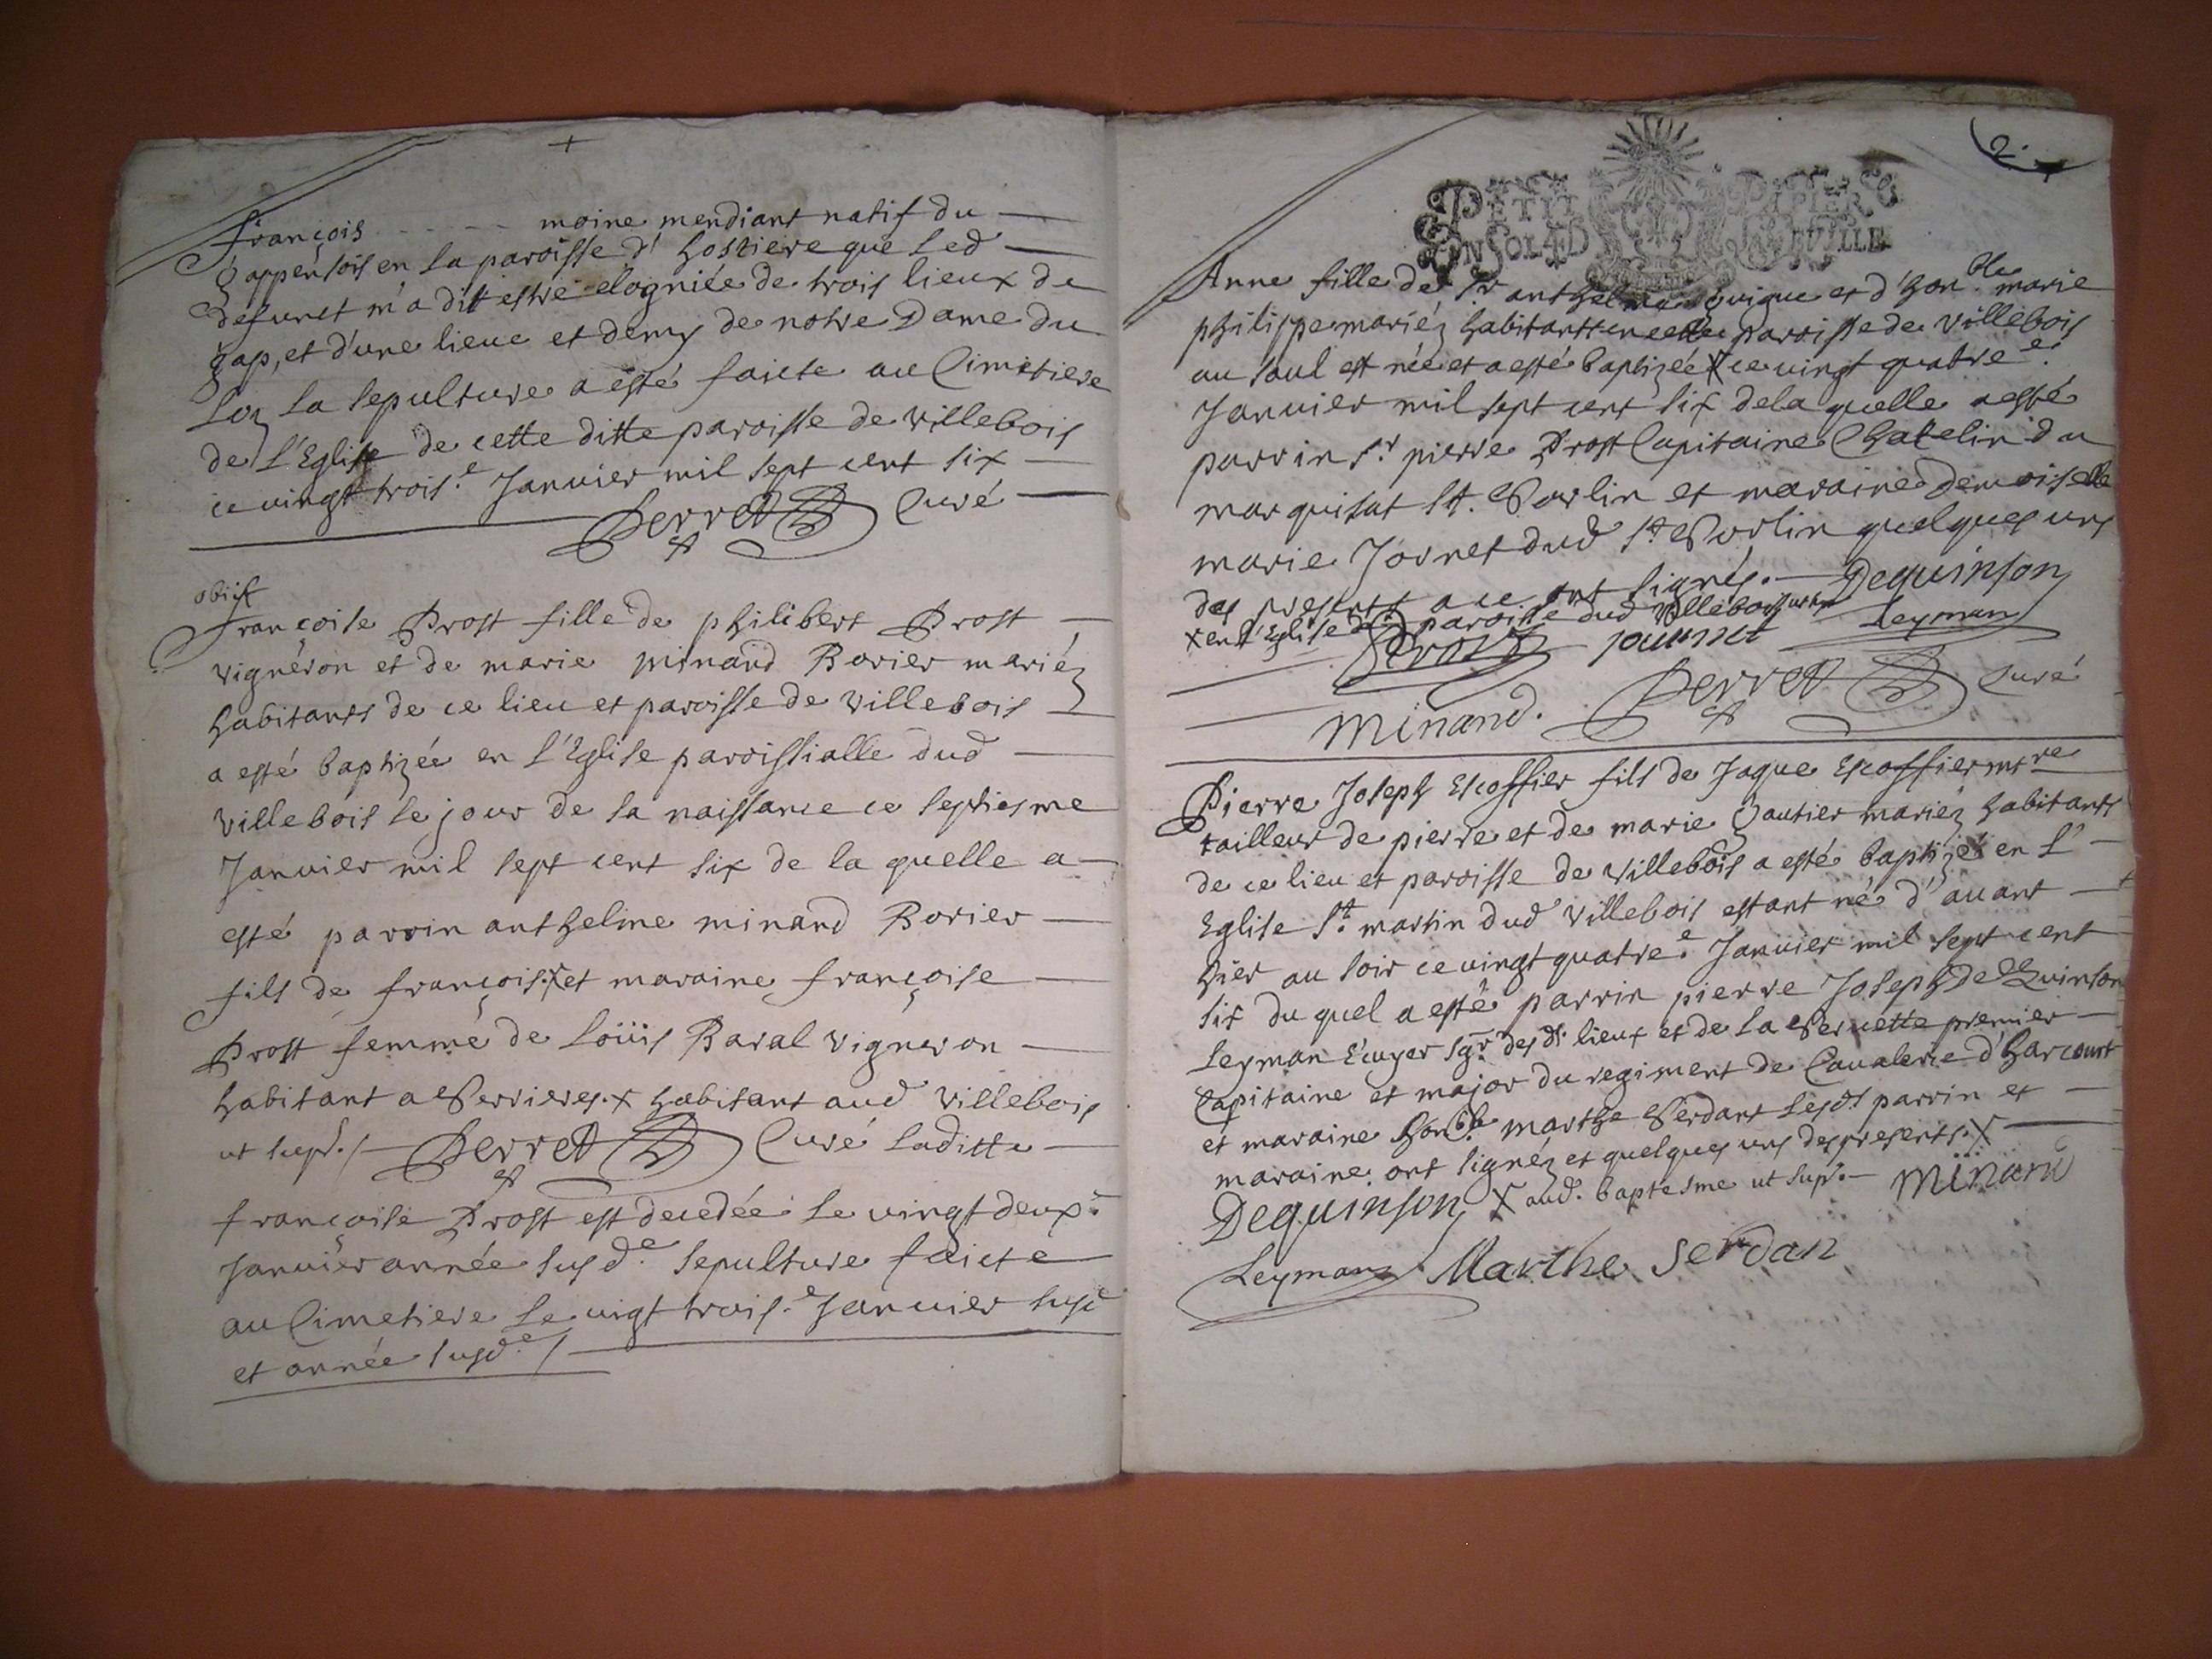 +
françois - - - - - moine mendiant natif du
gappensois en la paroisse d'hostiere que led
defunct m'a dit estre elogniée de trois lieux de
gap, et d'une lieue et demy de notre Dame du
Loz la sepulture a esté faicte au Cimetiere
de l'Eglise de cette ditte paroisse de villebois
ce vingt trois.e Janvier mil sept cent six
Perret Curé
obiit
françoise Prost fille de philibert Prost
vigneron et de marie minand Borier mariéz
habitants de ce lieu et paroisse de villebois
a esté baptizée en l'Eglise paroissialle dud
villebois le jour de sa naissance ce septiesme
Janvier mil sept cent six de la quelle a
esté parrin anthelme minand Borier
fils de françois.x et maraine françoise
Prost femme de Loüis Raval vigneron
habitant a Serrieres.x habitant aud villebois
ut sup.a /- Perret Curé laditte
françoise Prost est decedée le vingt deux.e
Janvier année susd.e sepulture faicte
au Cimetiere le vigt trois.e Janvier susd
et année susd.e /
2.
PETIT PAPIER
UN SOL 4 D LA FEUILLE
Anne fille de Sr anthelme guigue et d'hon.ble marie
philippe mariéz habitants en cette paroisse de villebois
au saul est née et a esté baptizée x ce vingt quatre.e
Janvier mil sept cent six de la quelle a esté
parrin S.r pierre Prost Capitaine Chatelin du
marquisat St. Sorlin et maraine Demoiselle
marie Jornet dud St Sorlin quelques uns
des presents a ce ont signés. - Dequinson
x en l'Eglise de paroisse dud villebois Leyman
Prost Journet
Minand. Perret Curé
Pierre Joseph Escoffier fils de Jaque Escoffier mtre
tailleur de pierre et de marie Gautier mariéz habitants
de ce lieu et paroisse de villebois a esté baptizé en l'
Eglise St. martin dud villebois estant né d'avant
hier au soir ce vingt quatre.e Janvier mil sept cent
six du quel a esté parrin pierre Joseph de Quinson
Leyman Ecuyer sgr. des dt. lieux et de la Servette premier
Capitaine et major du regiment de Cavalerie d'harcourt
et maraine hon.ble marthe Serdant lesdt parrin et
maraine ont signéz et quelques uns des presents.x
Dequinson x aud. baptesme ut sup.a - Minand
Leyman Marthe Serdan